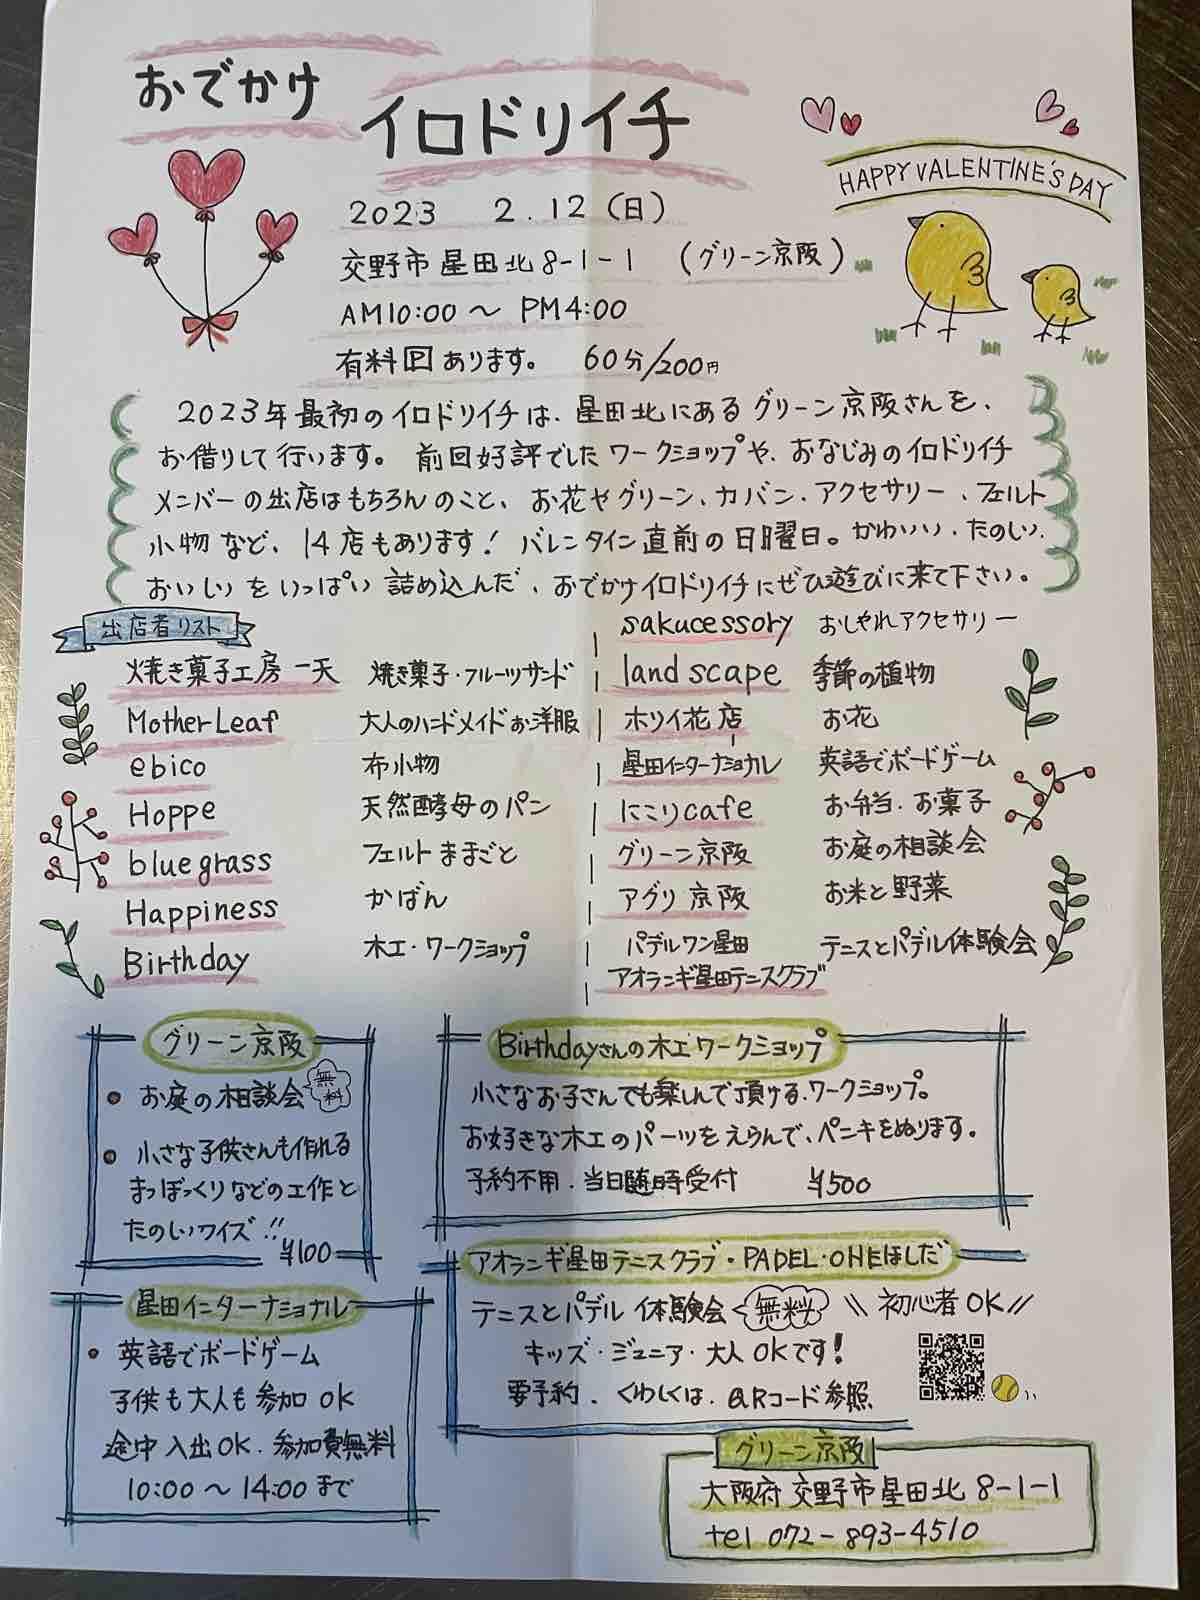 おでかけ
イロドリイチ
HAPPY VALENTINE'S DAY
2023 2.12(日)
交野市星田北8-1-1 (グリーン京阪)
AM10:00～PM4:00
有料Pあります。 60分/200円
2023年最初のイロドリイチは、星田北にあるグリーン京阪さんを、
お借りして行います。前回好評でしたワークショップや、おなじみのイロドリイチ
メンバーの出店はもちろんのこと、お花やグリーン、カバン、アクセサリー、フェルト
小物など、14店もあります! バレンタイン直前の日曜日。かわいい、たのしい、
おいしいをいっぱい詰め込んだ、おでかけイロドリイチにぜひ遊びに来て下さい。
出店者リスト
焼き菓子工房 一天 焼き菓子・フルーツサンド
MotherLeaf 大人のハンドメイドお洋服
ebico 布小物
Hoppe 天然酵母のパン
bluegrass フェルトままごと
Happiness かばん
Birthday 木工・ワークショップ
sakucessory おしゃれアクセサリー
landscape 季節の植物
ホリイ花店 お花
星田インターナショナル 英語でボードゲーム
にこりcafe お弁当・お菓子
グリーン京阪 お庭の相談会
アグリ京阪 お米と野菜
パデルワン星田 テニスとパデル体験会
アオランギ星田テニスクラブ
グリーン京阪
・お庭の相談会 無料
・小さな子供さんも作れる
まつぼっくりなどの工作と
たのしいクイズ!!
¥100
Birthdayさんの木工ワークショップ
小さなお子さんでも楽しんで頂ける、ワークショップ。
お好きな木工のパーツをえらんで、ペンキをぬります。
予約不用・当日随時受付 ¥500
星田インターナショナル
・英語でボードゲーム
子供も大人も参加OK
途中入出OK・参加費無料
10:00～14:00まで
アオランギ星田テニスクラブ・PADEL・ONEほしだ
テニスとパデル体験会 無料 \\初心者OK//
キッズ・ジュニア・大人OKです!
要予約、くわしくは、QRコード参照
グリーン京阪
大阪府交野市星田北8-1-1
tel 072-893-4510